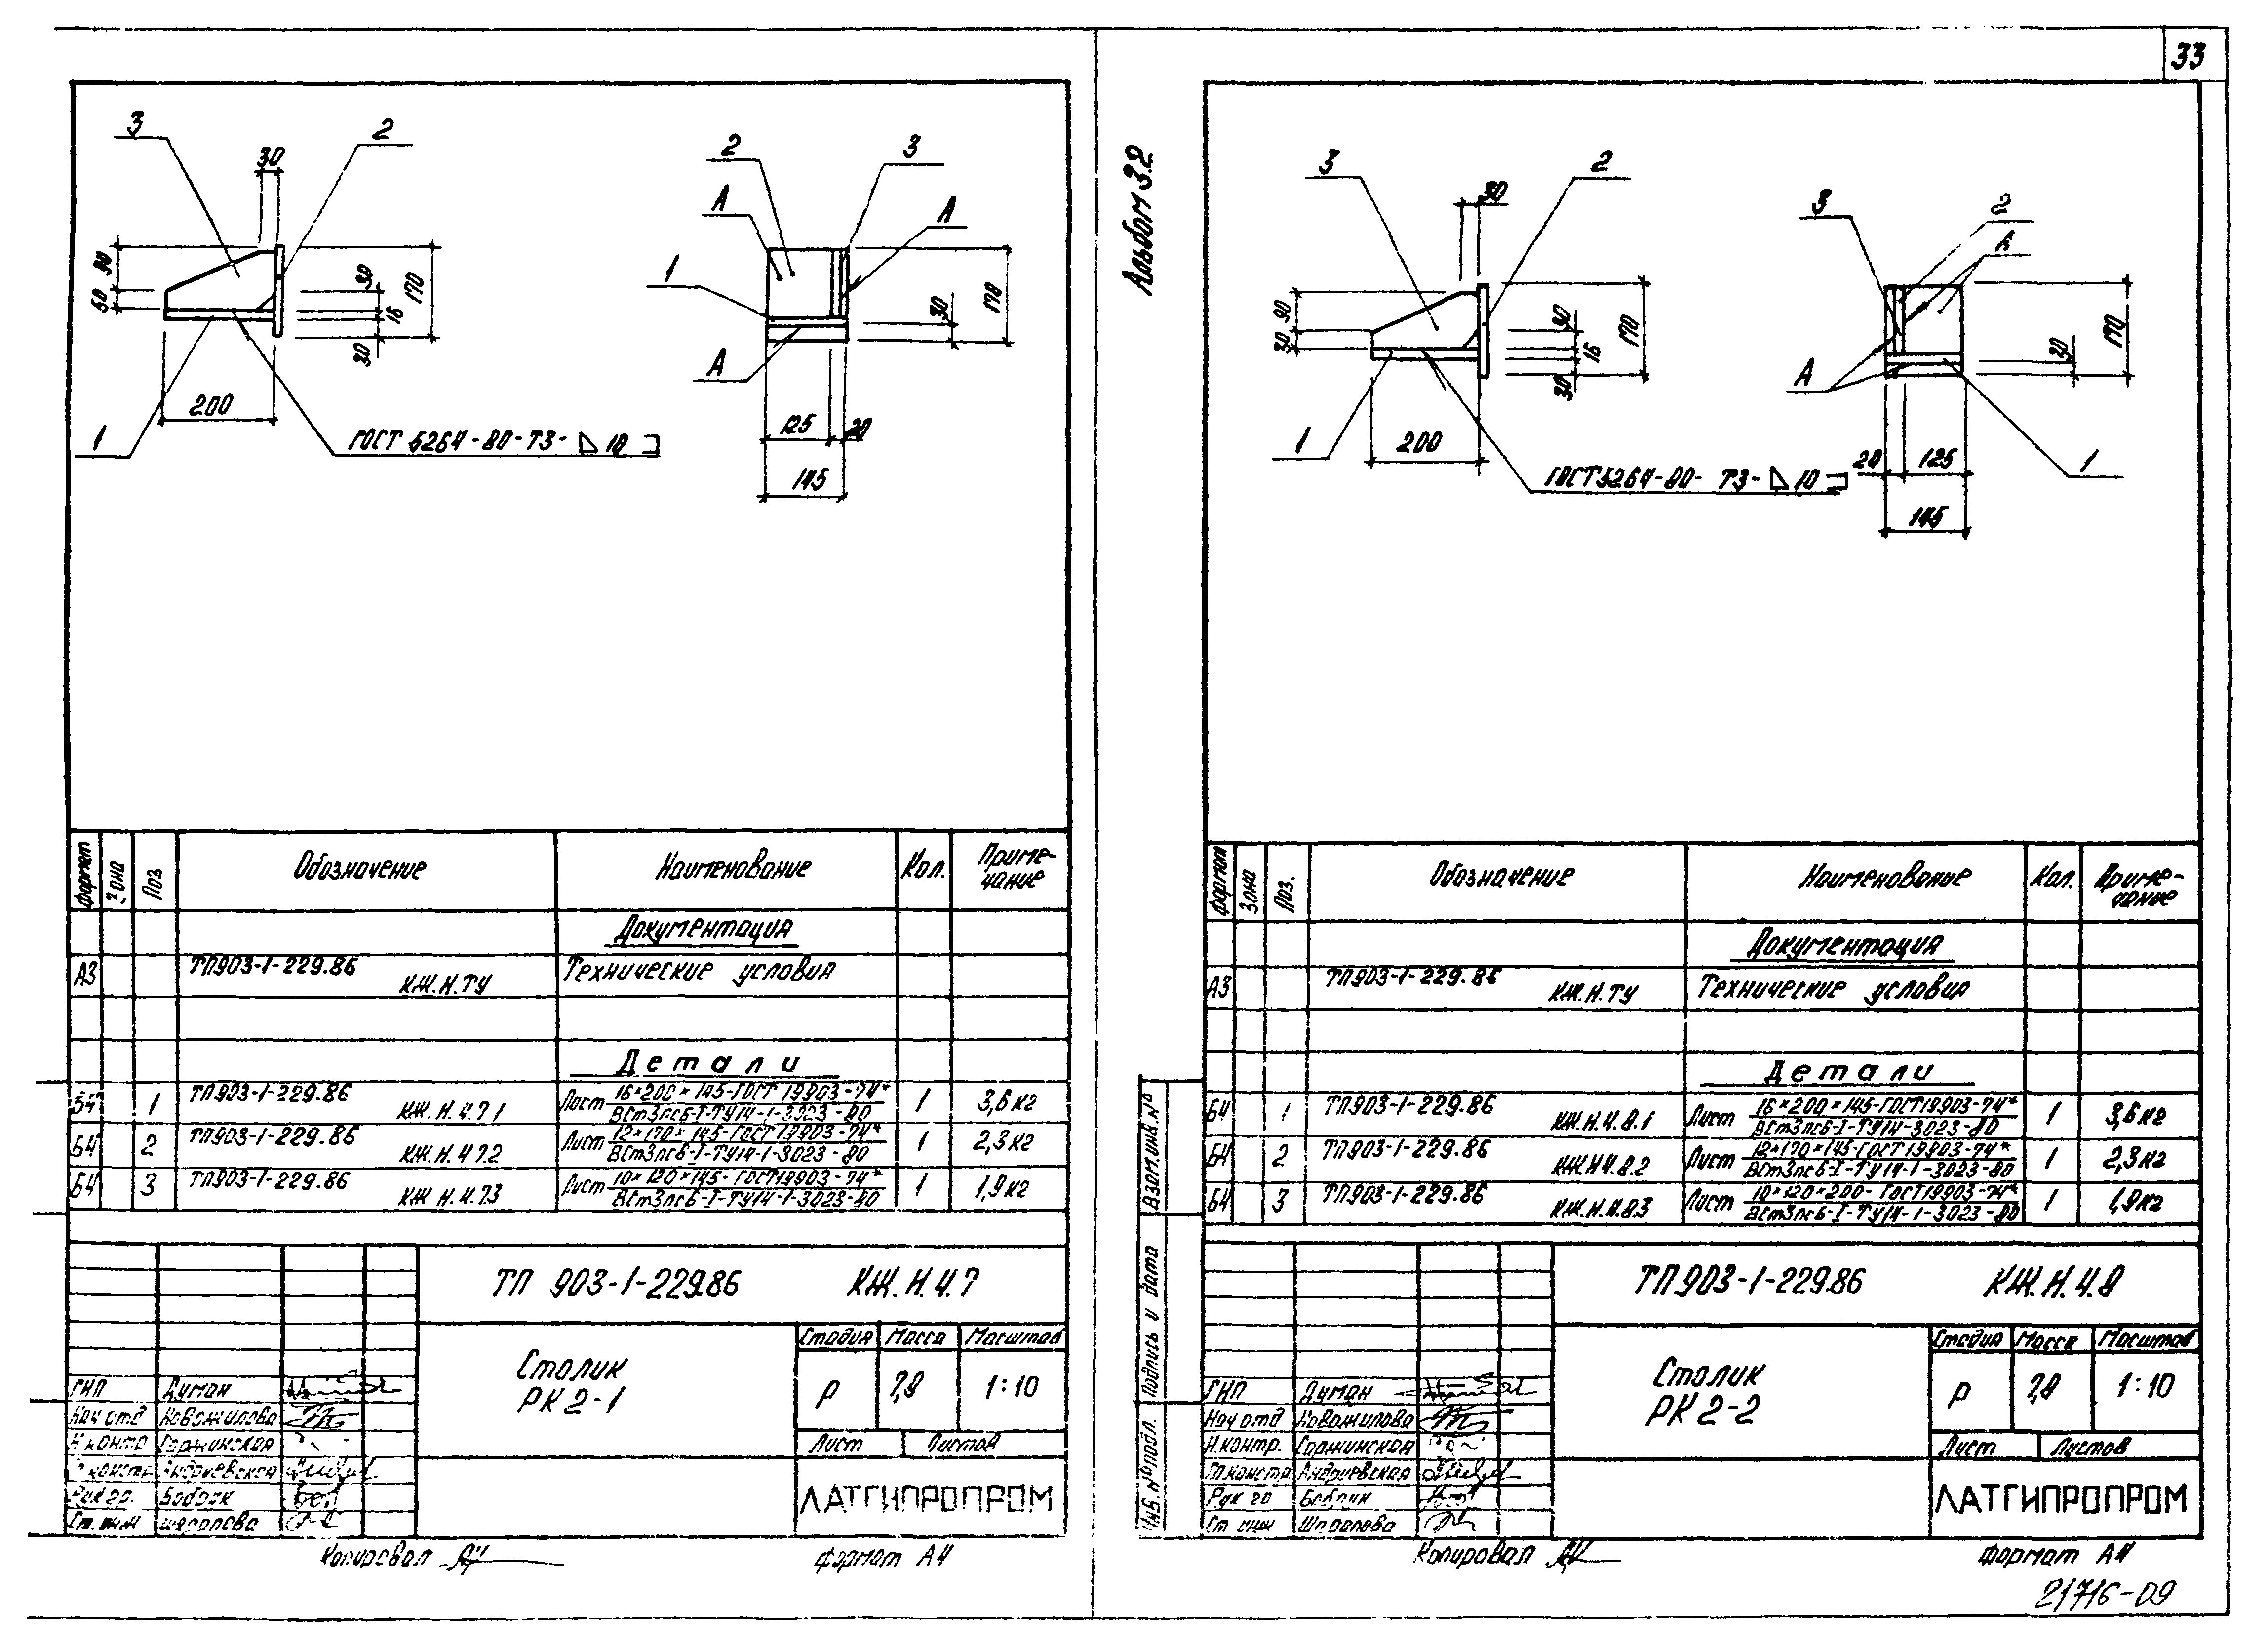 33
Альбом 3.2
3
2
30
90
50
30
16
170
30
200
1
ГОСТ 5264-80-Т3-◺10
2
3
А
А
1
170
30
А
125
20
145
Формат
Зона
Поз
Обозначение
Наименование
Кол.
Приме-
чание
Документация
А3
ТП903-1-229.86
КЖ.Н.ТУ
Технические условия
Детали
Б4
1
ТП903-1-229.86
КЖ.Н.4.7.1
Лист 16×200×145-ГОСТ 19903-74*
ВСт3пс6-I-ТУ14-1-3023-80
1
3,6 кг
Б4
2
ТП903-1-229.86
КЖ.Н.4.7.2
Лист 12×170×145-ГОСТ 19903-74*
ВСт3пс6-I-ТУ14-1-3023-80
1
2,3 кг
Б4
3
ТП903-1-229.86
КЖ.Н.4.7.3
Лист 10×120×145-ГОСТ 19903-74*
ВСт3пс6-I-ТУ14-1-3023-80
1
1,9 кг
ТП 903-1-229.86 КЖ.Н.4.7
Столик
РК2-1
Стадия
Масса
Масштаб
Р
7,8
1:10
Лист
Листов
ГИП Думан
Нач отд Новожилова
Н контр Гаржинская
Гл констр Андриевская
Рук гр. Бобрик
Ст. инж Шарапова
ЛАТГИПРОПРОМ
Копировал
Формат А4
3
2
30
90
30
30
16
30
170
200
1
ГОСТ 5264-80-Т3-◺10
3
2
А
А
30
170
20
125
1
145
Формат
Зона
Поз.
Обозначение
Наименование
Кол.
Приме-
чание
Документация
А3
ТП903-1-229.86
КЖ.Н.ТУ
Технические условия
Детали
Б4
1
ТП903-1-229.86
КЖ.Н.4.8.1
Лист 16×200×145-ГОСТ 19903-74*
ВСт3пс6-I-ТУ14-1-3023-80
1
3,6 кг
Б4
2
ТП903-1-229.86
КЖ.Н.4.8.2
Лист 12×170×145-ГОСТ 19903-74*
ВСт3пс6-I-ТУ14-1-3023-80
1
2,3 кг
Б4
3
ТП903-1-229.86
КЖ.Н.4.8.3
Лист 10×120×200-ГОСТ 19903-74*
ВСт3пс6-I-ТУ14-1-3023-80
1
1,9 кг
Взам.инв.№
Подпись и дата
Инв.№подл.
ТП903-1-229.86 КЖ.Н.4.8
Столик
РК2-2
Стадия
Масса
Масштаб
Р
7,8
1:10
Лист
Листов
ГИП Думан
Нач отд Новожилова
Н.контр. Гаржинская
Гл констр Андриевская
Рук гр Бобрик
Ст инж Шарапова
ЛАТГИПРОПРОМ
Копировал
Формат А4
21716-09